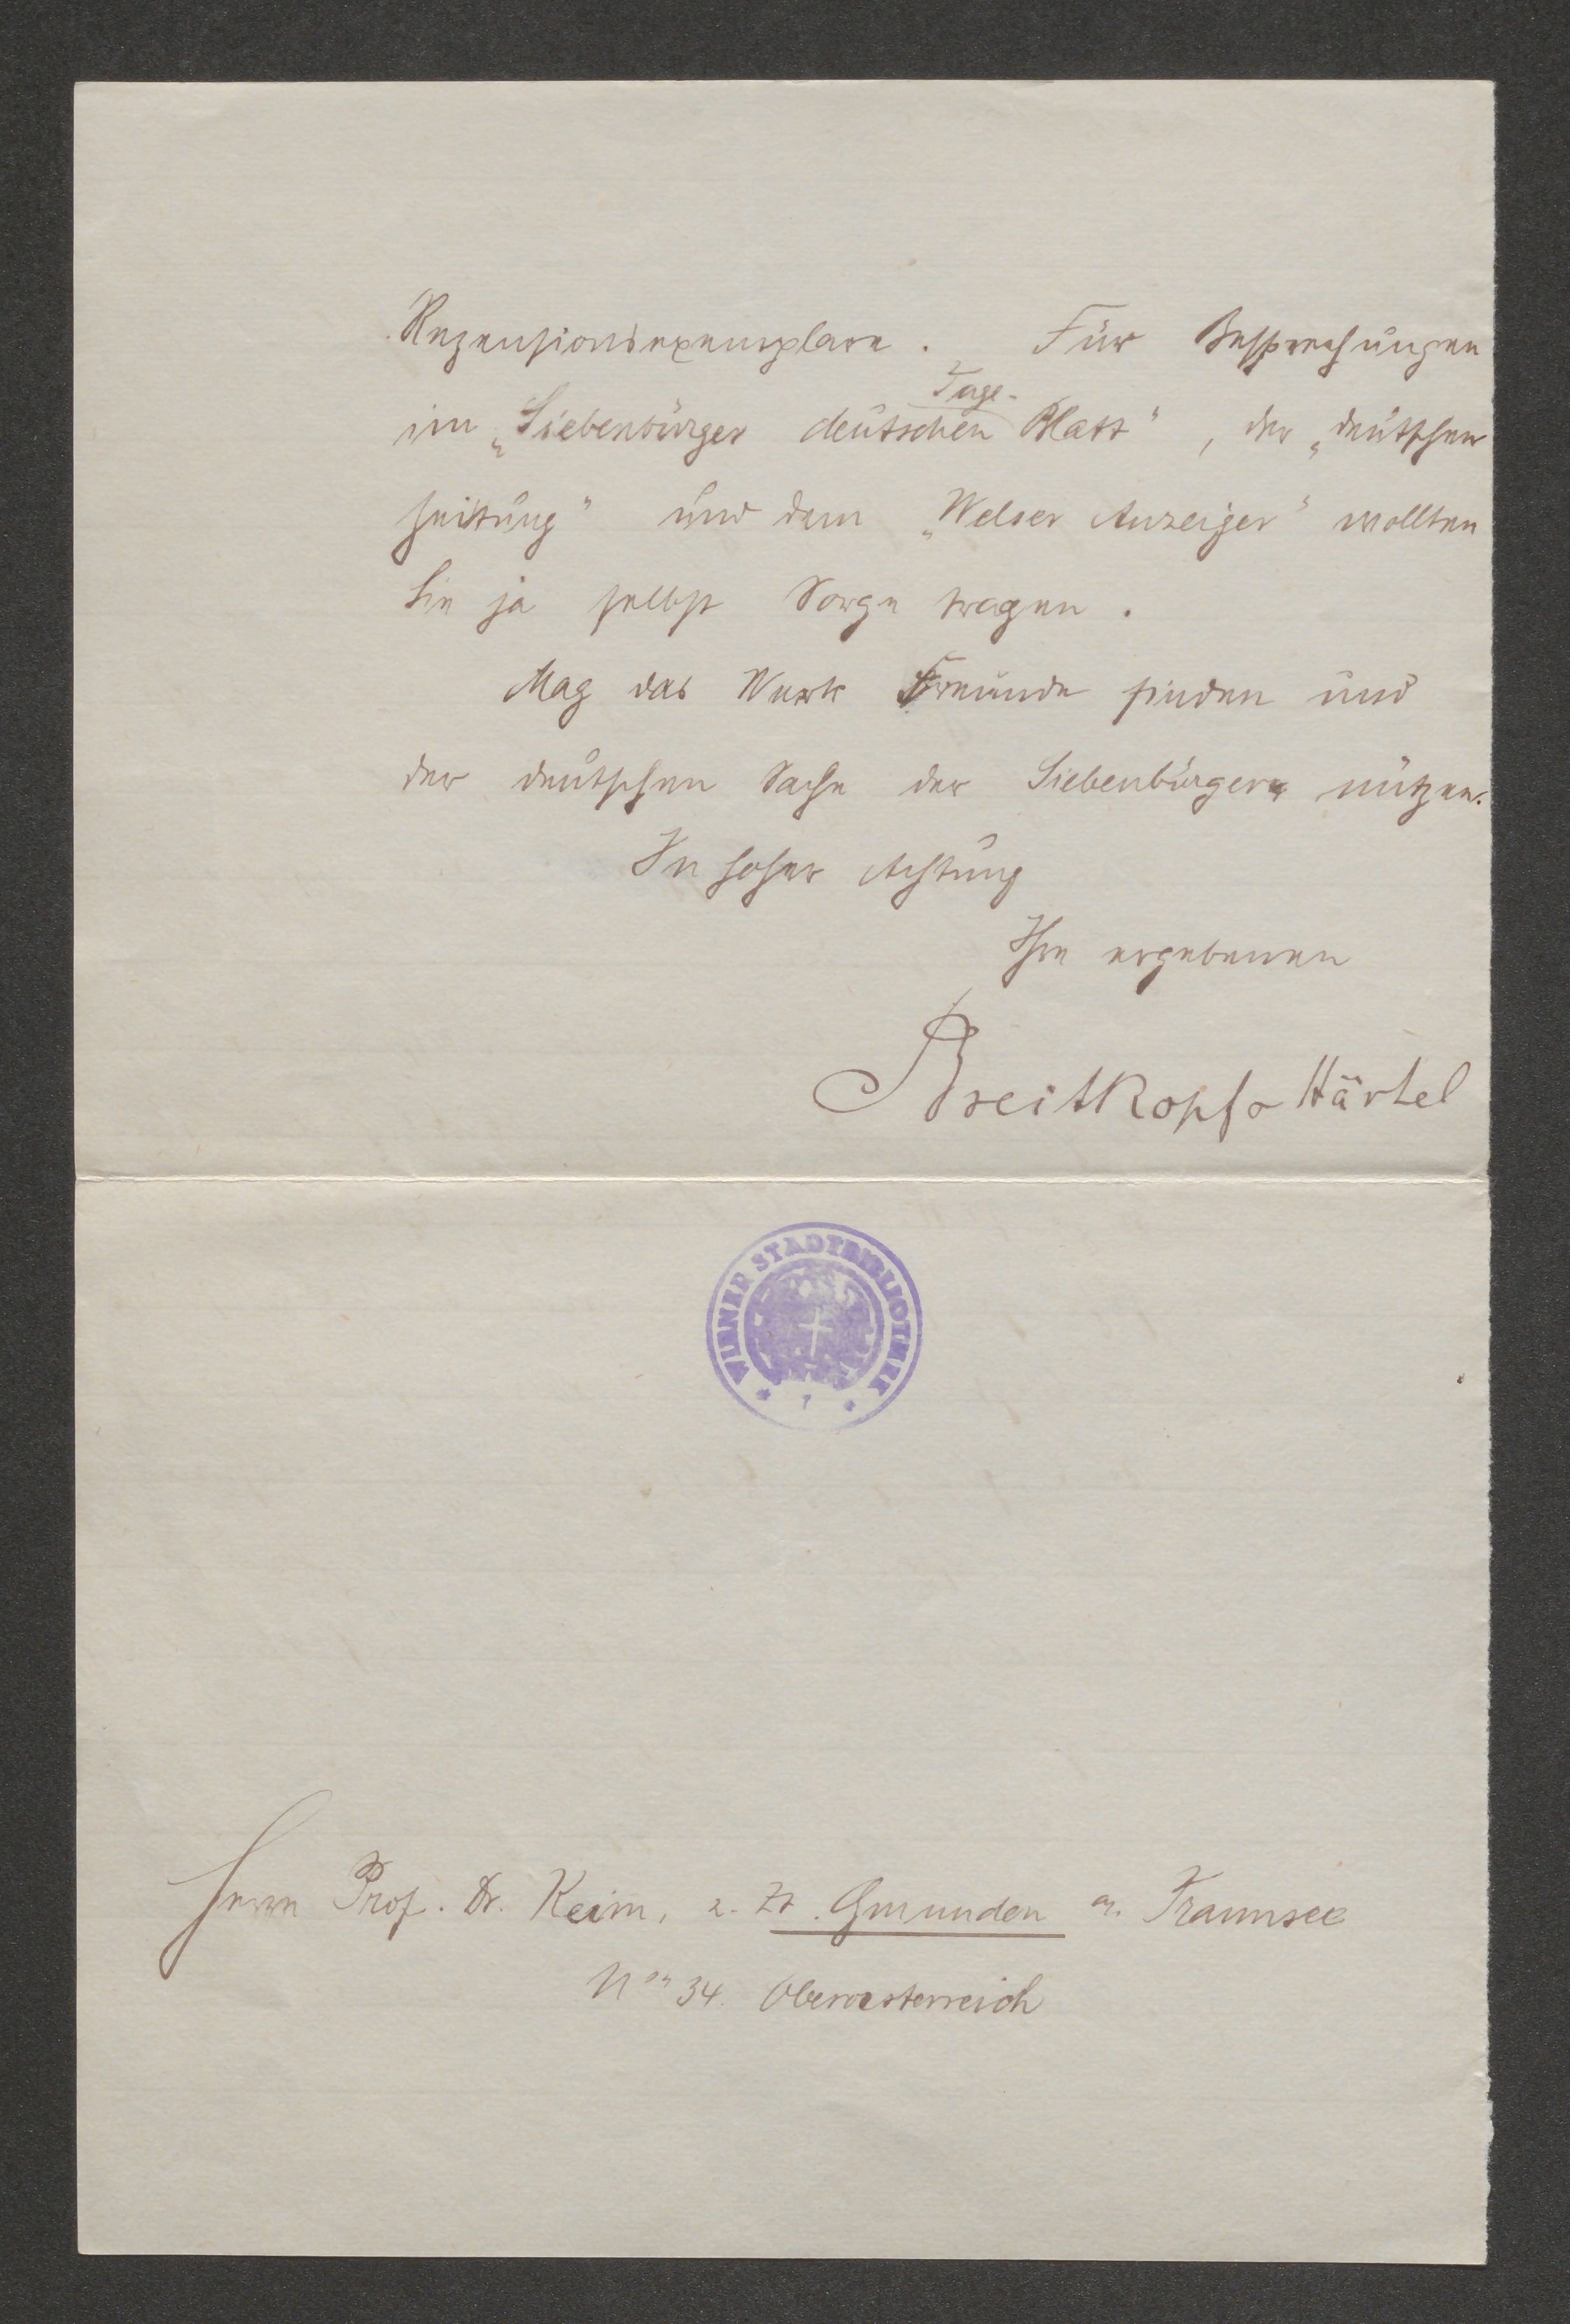 Rezensionsexemplare. Für Besprechungen
im „Siebenbürger deutschen Tage-Blatt", der „deutschen
Zeitung" und dem „Welser Anzeiger" wollten
Sie ja selbst Sorge tragen.
Mag das Werk Freunde finden und
der deutschen Sache der Siebenbürger nützen.
In hoher Achtung
Ihre ergebenen
Breitkopf & Härtel
WIENER STADTBIBLIOTHEK
* 1 *
Herrn Prof. Dr. Keim, z. Zt. Gmunden a. Traunsee
No 34. Oberoesterreich